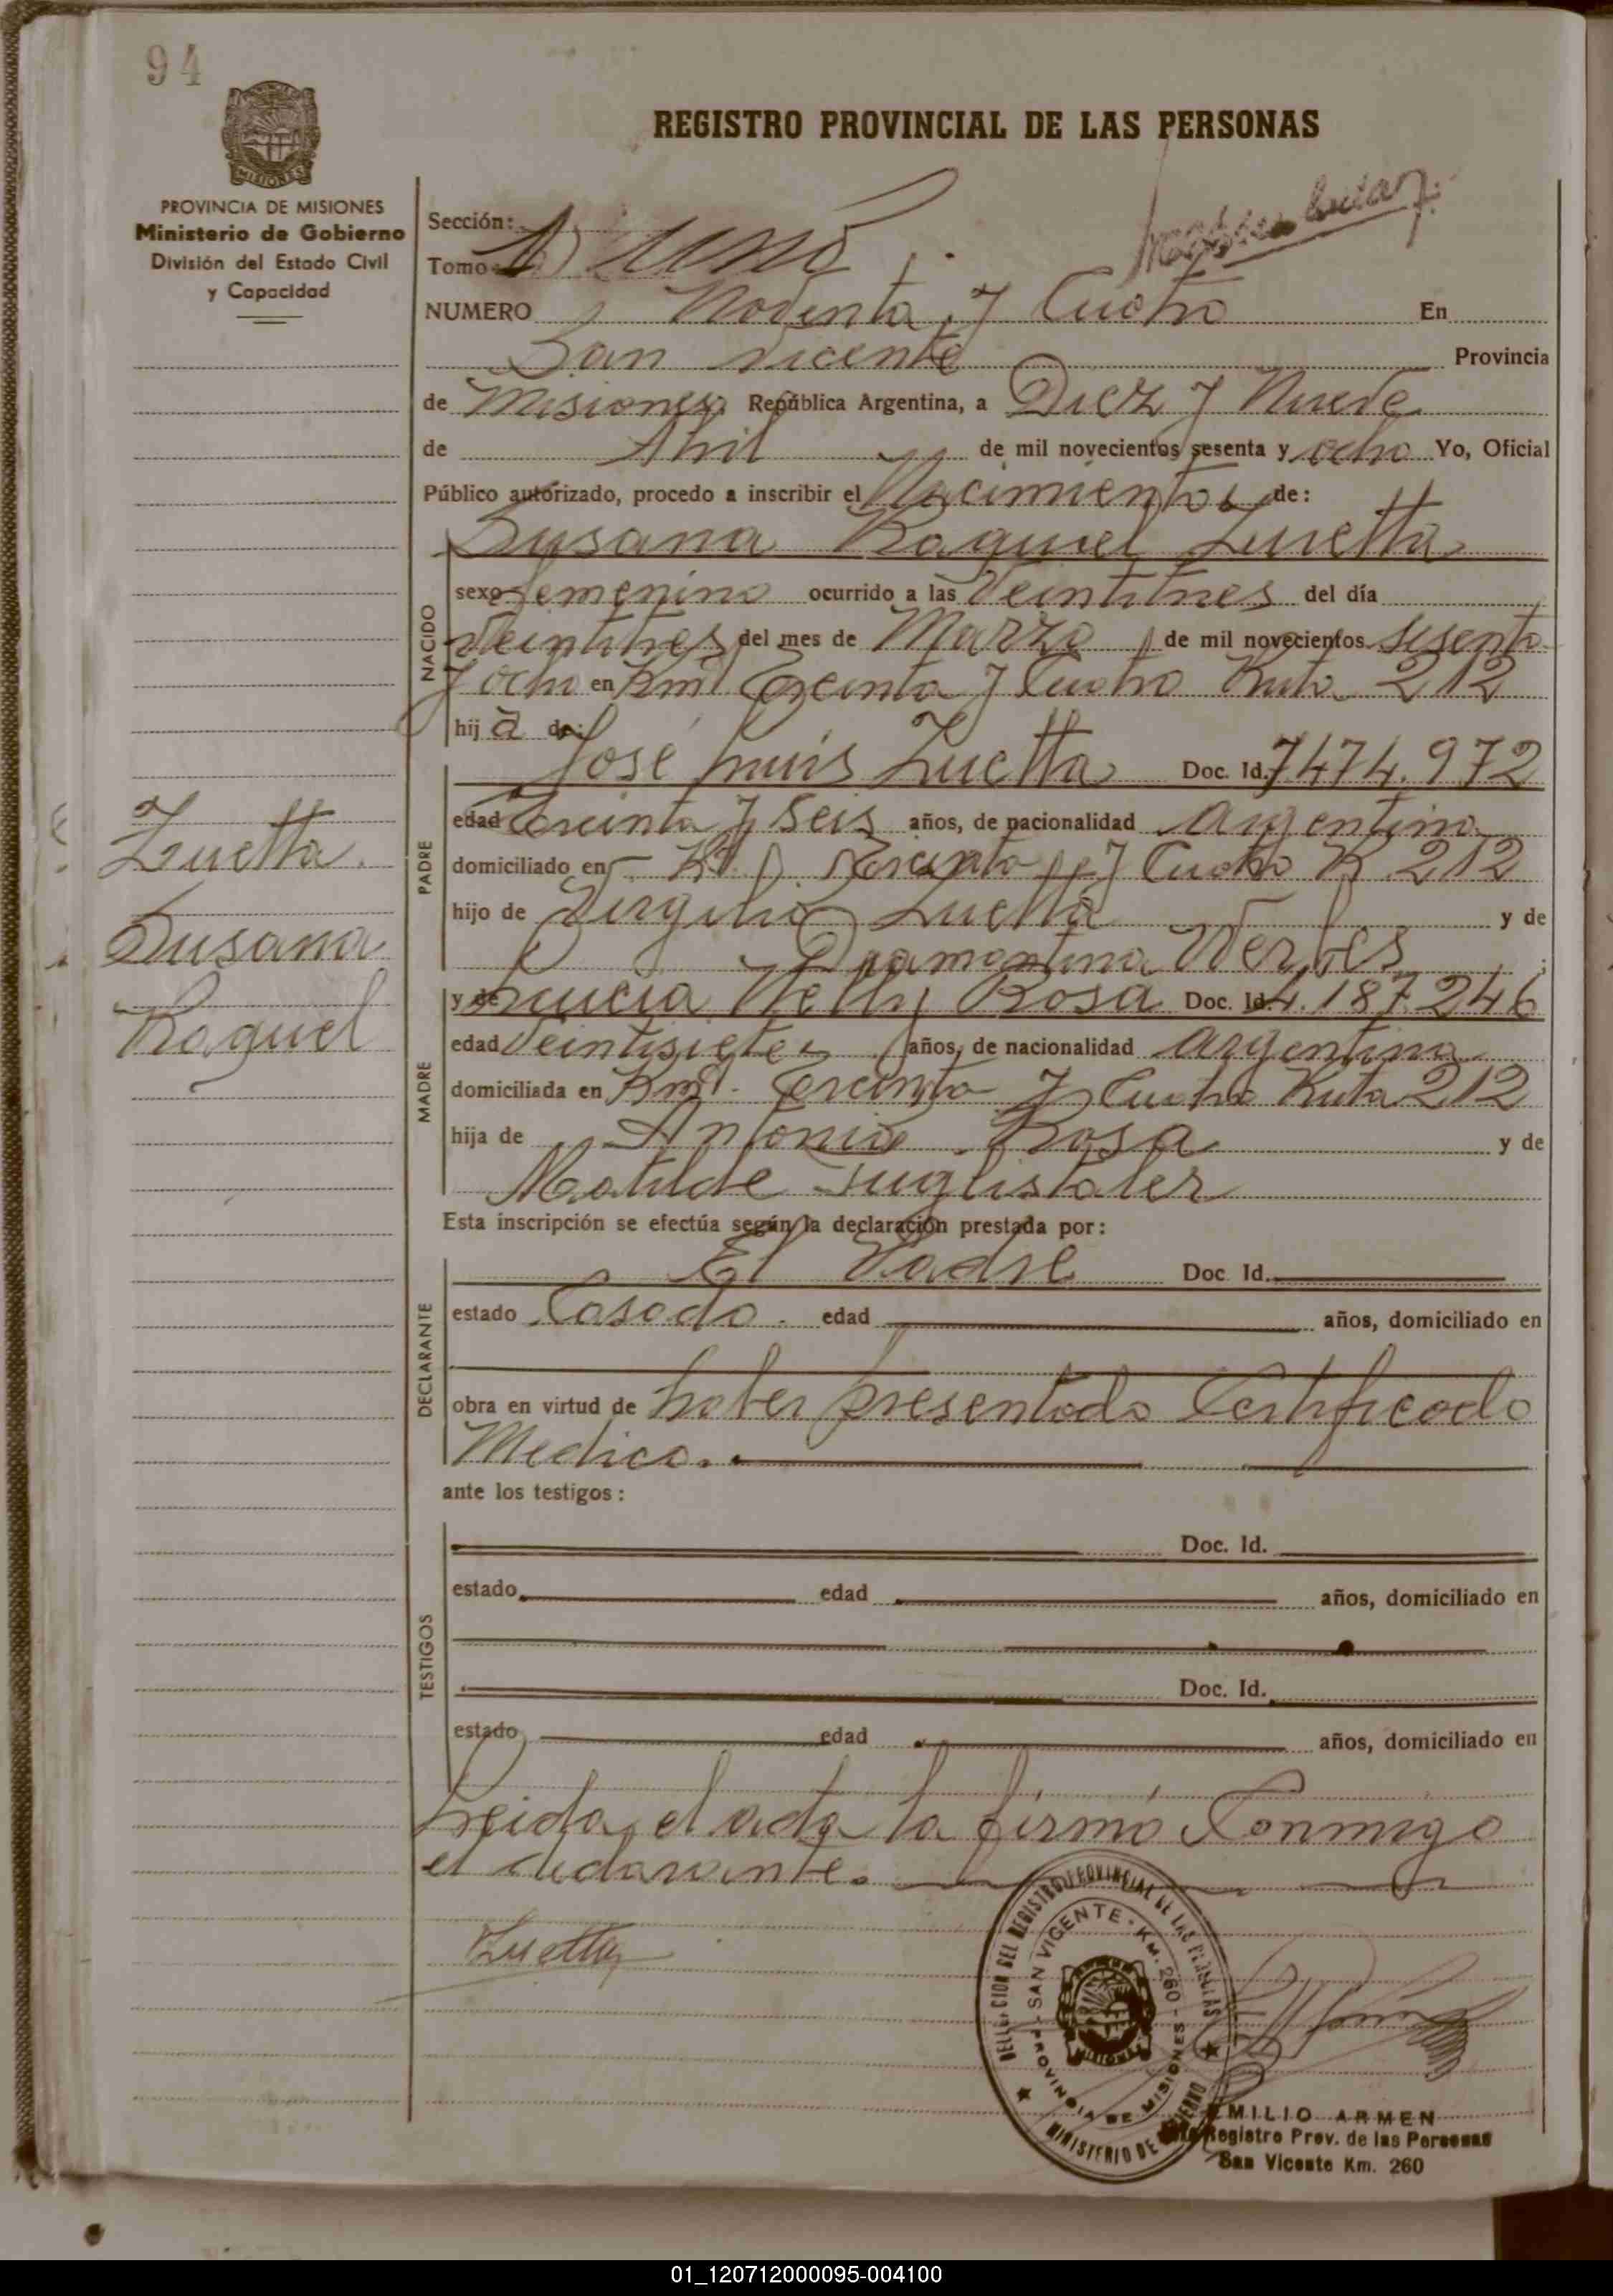 94
REGISTRO PROVINCIAL DE LAS PERSONAS
MISIONES
PROVINCIA DE MISIONES
Ministerio de Gobierno
División del Estado Civil
y Capacidad
Sección:
Tomo 1) uno
NUMERO Noventa y Cuatro En
San Vicente Provincia
de Misiones República Argentina, a Diez y Nueve
de Abril de mil novecientos sesenta y ocho Yo, Oficial
Público autorizado, procedo a inscribir el Nacimiento de:
Susana Raquel Zuetta
NACIDO
sexo femenino ocurrido a las Veintitres del día
Veintitres del mes de Marzo de mil novecientos sesenta
y ocho en Km Treinta y Cuatro Ruta 212
hij a de:
José Luis Zuetta Doc. Id. 7474.972
PADRE
edad Treinta y Seis años, de nacionalidad Argentino
domiciliado en K Treinta y Cuatro R 212
hijo de Virgilio Zuetta y de
Diamantina
y de Lucia Nelly Rosa Doc. Id. 4.187.246
MADRE
edad Veintisiete años, de nacionalidad Argentina
domiciliada en Km. Treinta y Cuatro Ruta 212
hija de Antonio Rosa y de
Matilde Suglistaler
Esta inscripción se efectúa según la declaración prestada por:
El Padre Doc. Id.
DECLARANTE
estado Casado. edad años, domiciliado en
obra en virtud de haber presentado Certificado
Medico.
ante los testigos:
Doc. Id.
TESTIGOS
estado edad años, domiciliado en
Doc. Id.
estado edad años, domiciliado en
Leida el acta la firmó Conmigo
el declarante.
Zuetta
Susana
Raquel
Zuetta
DELEGACION DEL REGISTRO PROVINCIAL DE LAS PERSONAS
SAN VICENTE - KM. 260 -
PROVINCIA DE MISIONES
MISIONES
MINISTERIO DE GOBIERNO
EMILIO ARMEN
Registro Prov. de las Personas
San Vicente Km. 260
01_120712000095-004100